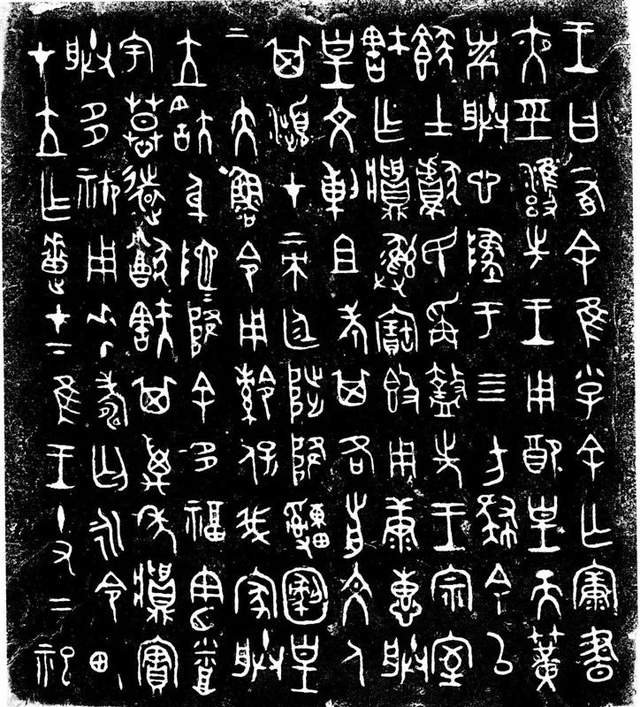 王曰有余隹小子余亡康晝
夜巠雍先王用配皇天簧
黹朕心墜于四方肆余以
𩛥士獻民爯盩先王宗室
㝬作𩰫彝寶簋用康惠朕
皇文剌祖考其各前文人
其頻在帝廷陟降申恪皇
帝大魯令用令保我家朕
位㝬身阤阤降余多福憲烝
宇慕遠猷㝬其萬年𩰫實
朕多禦用𠦪壽匄永令畯
在位作疐在下隹王十又二祀